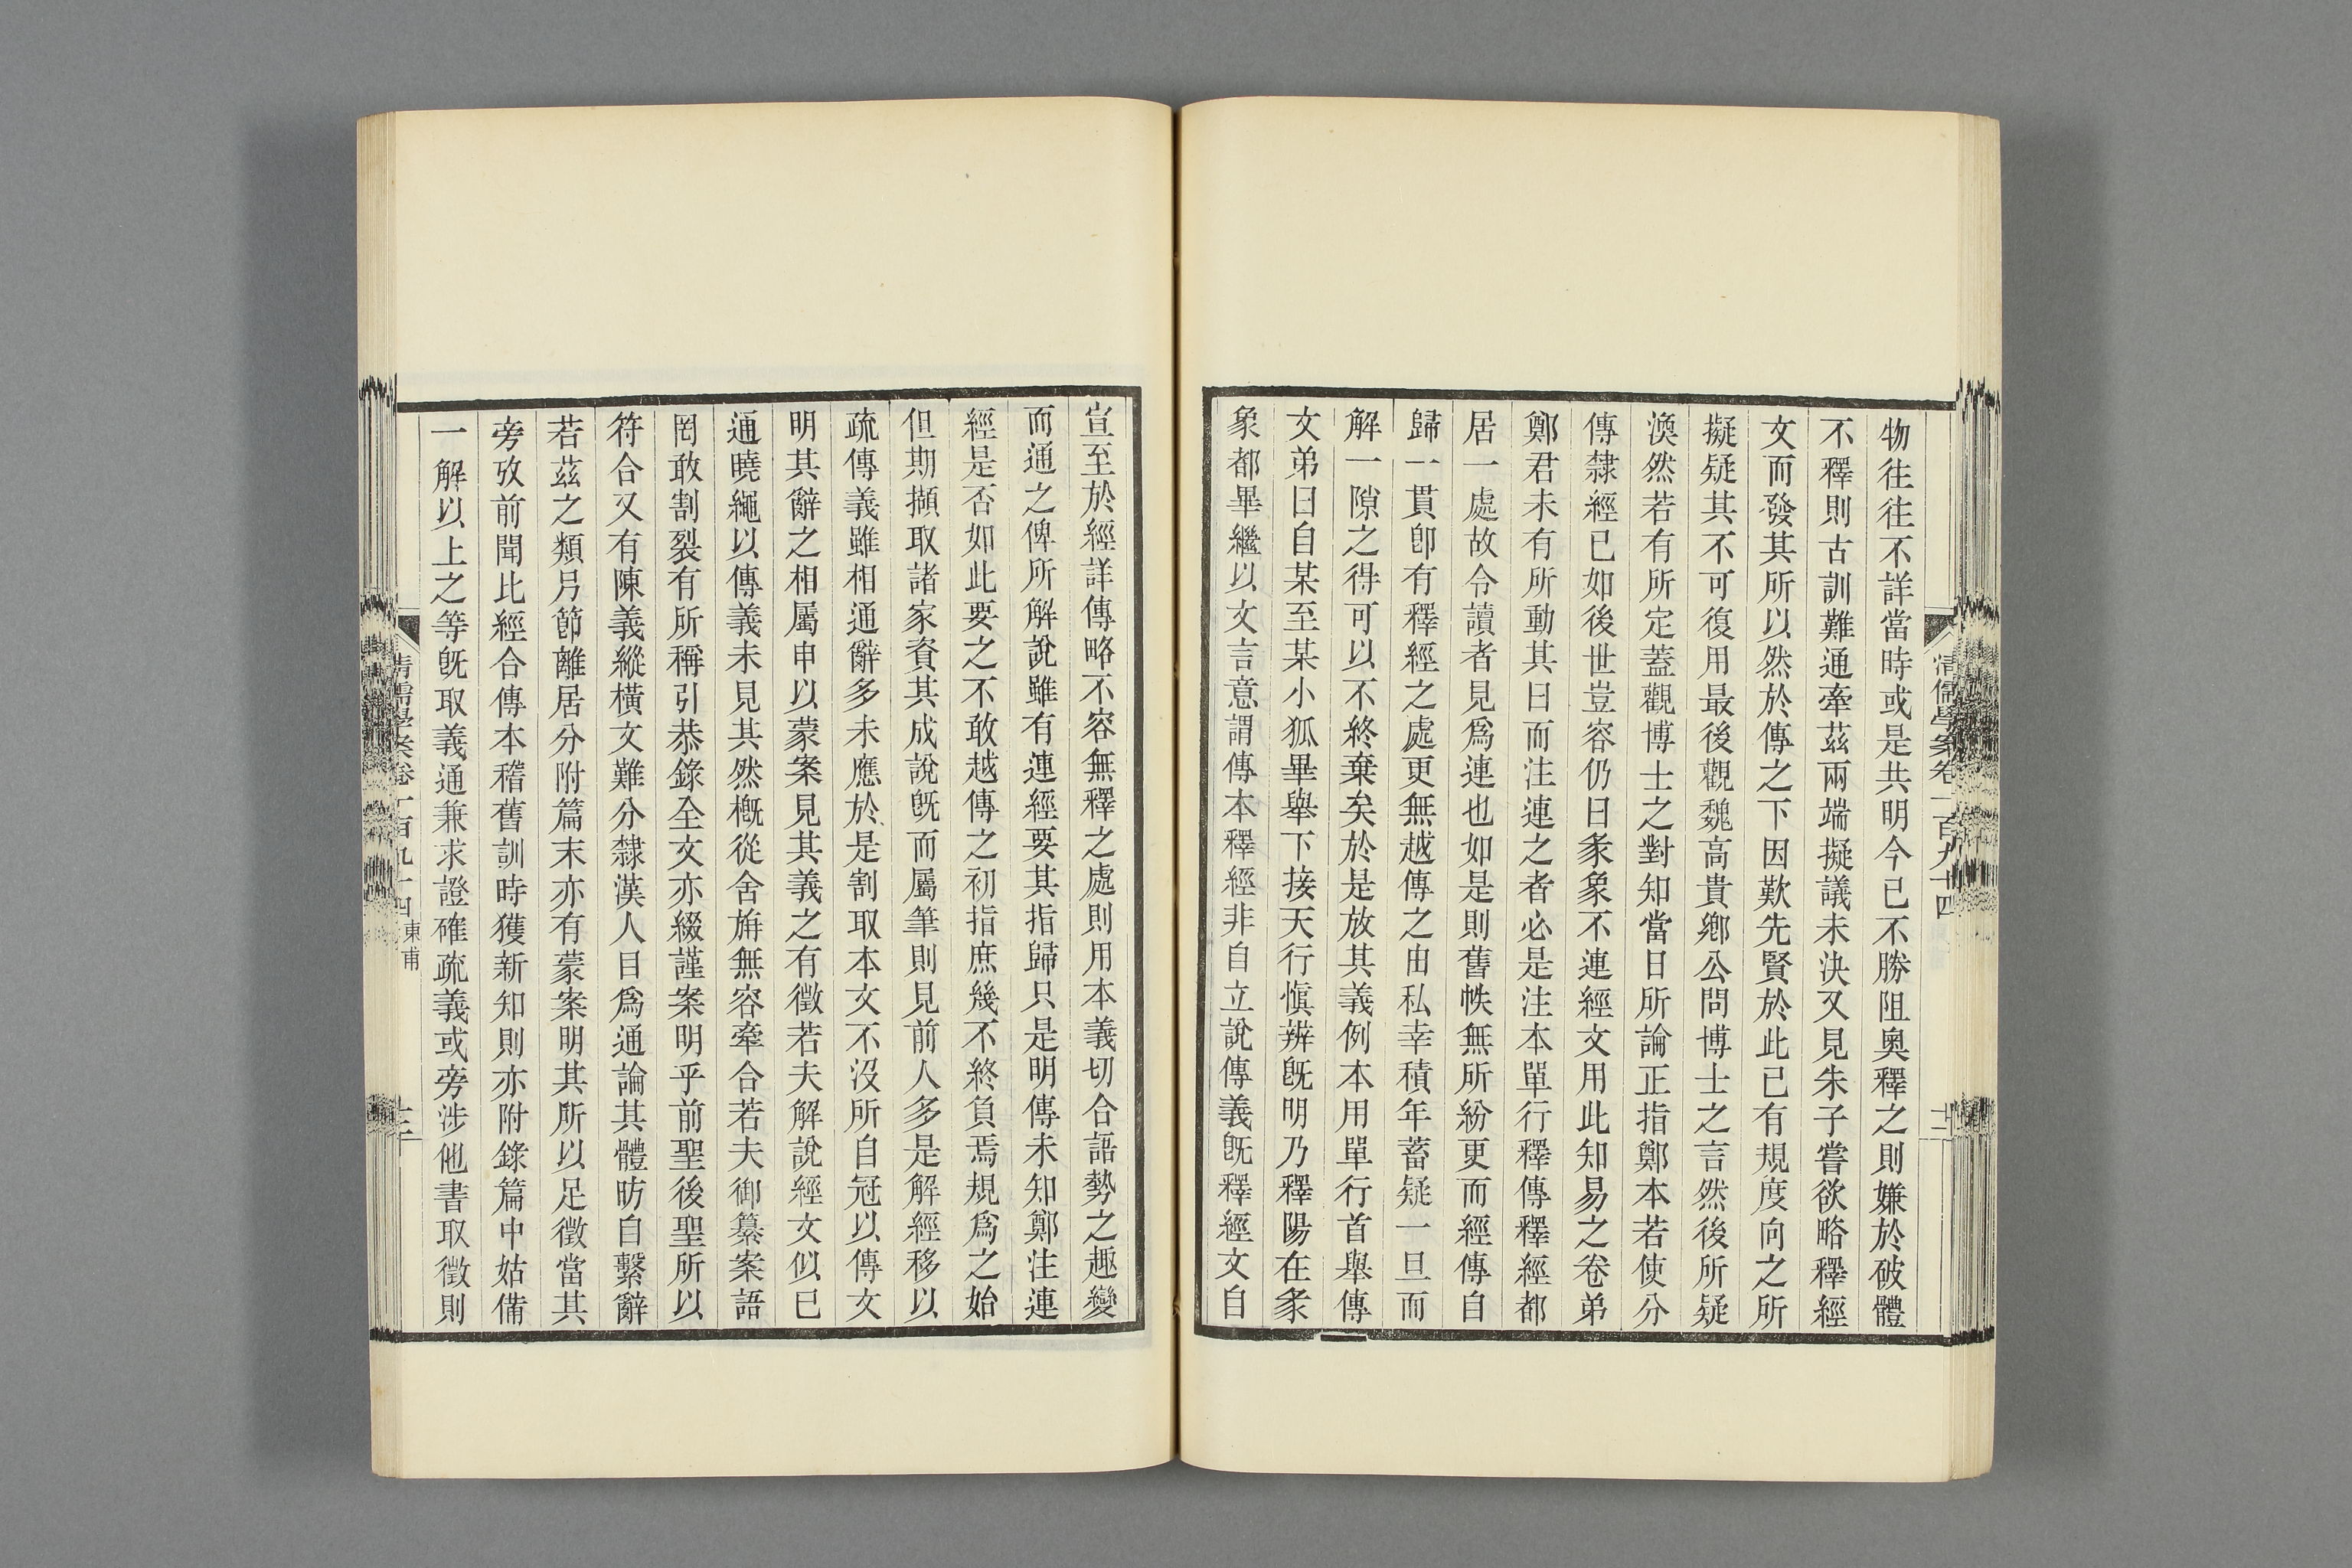 物往往不詳當時或是共明今已不勝阻奧釋之則嫌於破體
不釋則古訓難通牽茲兩端擬議未決又見朱子嘗欲略釋經
文而發其所以然於傳之下因歎先賢於此已有規度向之所
擬疑其不可復用最後觀魏高貴鄉公問博士之言然後所疑
渙然若有所定蓋觀博士之對知當日所論正指鄭本若使分
傳隸經已如後世豈容仍曰彖象不連經文用此知易之卷弟
鄭君未有所動其曰而注連之者必是注本單行釋傳釋經都
居一處故令讀者見爲連也如是則舊帙無所紛更而經傳自
歸一貫卽有釋經之處更無越傳之由私幸積年蓄疑一旦而
解一隙之得可以不終棄矣於是放其義例本用單行首舉傳
文弟曰自某至某小狐畢舉下接天行愼辨旣明乃釋陽在彖
象都畢繼以文言意謂傳本釋經非自立說傳義旣釋經文自
清儒學案卷一百九十四
十二
宣至於經詳傳略不容無釋之處則用本義切合語勢之趣變
而通之俾所解說雖有連經要其指歸只是明傳未知鄭注連
經是否如此要之不敢越傳之初指庶幾不終負焉規爲之始
但期擷取諸家資其成說旣而屬筆則見前人多是解經移以
疏傳義雖相通辭多未應於是割取本文不沒所自冠以傳文
明其辭之相屬申以蒙案見其義之有徵若夫解說經文似已
通曉繩以傳義未見其然槪從舍旃無容牽合若夫御纂案語
罔敢割裂有所稱引恭錄全文亦綴謹案明乎前聖後聖所以
符合又有陳義縱橫文難分隸漢人目爲通論其體昉自繫辭
若茲之類另節離居分附篇末亦有蒙案明其所以足徵當其
旁攷前聞比經合傳本稽舊訓時獲新知則亦附錄篇中姑備
一解以上之等旣取義通兼求證確疏義或旁涉他書取徵則
清儒學案卷一百九十四 東甫
十三